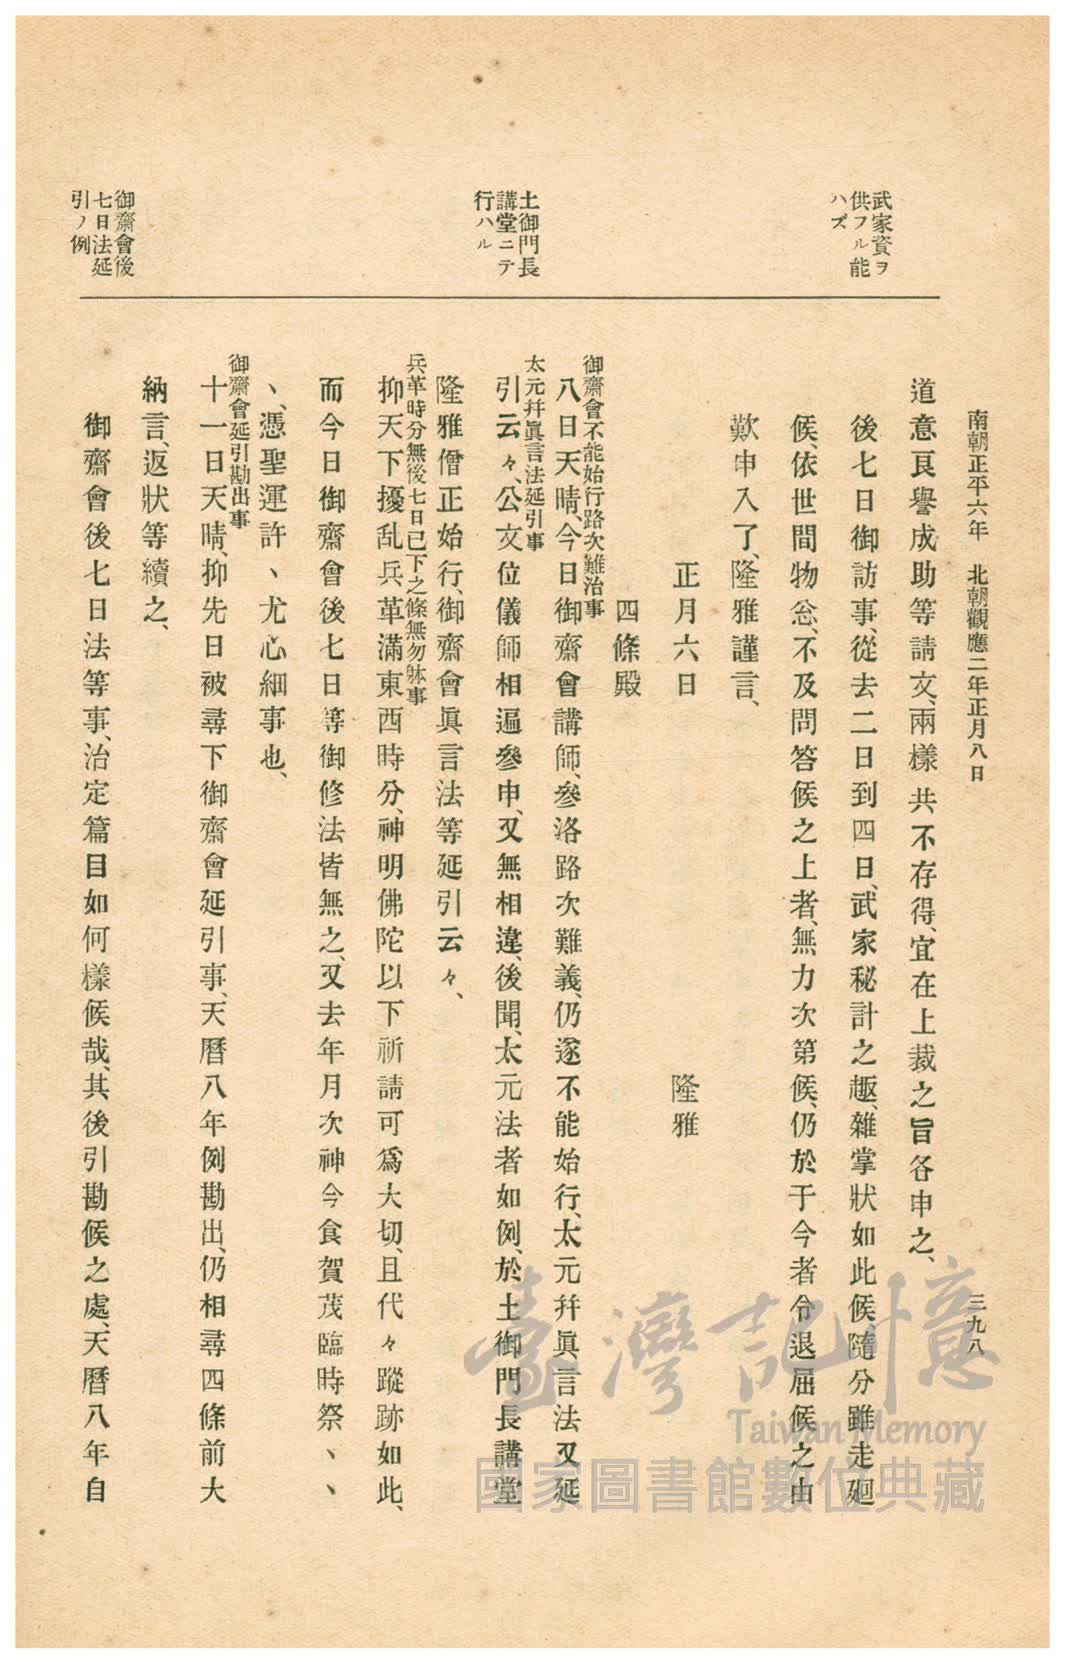 南朝正平六年　北朝觀應二年正月八日
三九八
武家資ヲ
供フル能
ハズ
土御門長
講堂ニテ
行ハル
御齋會後
七日法延
引ノ例
道意良譽成助等請文、兩樣共不存得、宜在上裁之旨各申之、
後七日御訪事、從去二日到四日、武家秘計之趣、雜掌狀如此候、隨分雖走廻
候、依世間物忩、不及問答候之上者、無力次第候、仍於于今者令退屈候之由
歎申入了、隆雅謹言、
正月六日　隆雅
四條殿
御齋會不能始行路次難治事
八日天晴、今日御齋會講師、參洛路次難義、仍遂不能始行、太元幷眞言法又延
太元幷眞言法延引事
引云々、公文位儀師相逼參申、又無相違、後聞、太元法者如例、於土御門長講堂
隆雅僧正始行、御齋會眞言法等延引云々、
兵革時分無後七日已下之條無勿躰事
抑天下擾乱兵革滿東西時分、神明佛陀以下祈請可爲大切、且代々蹤跡如此、
而今日御齋會後七日等御修法皆無之、又去年月次神今食賀茂臨時祭、、、
、、憑聖運許、尤心細事也、
御齋會延引勘出事
十一日天晴、抑先日被尋下御齋會延引事、天曆八年例勘出、仍相尋四條前大
納言、返狀等續之、
御齋會後七日法等事、治定篇目如何樣候哉、其後引勘候之處、天曆八年自
臺灣記憶
Taiwan Memory
國家圖書館數位典藏